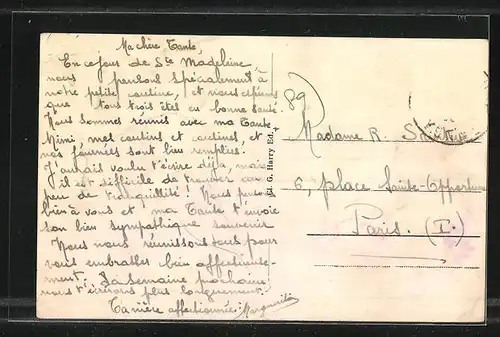 Ma chère Tante,
En ce jour de Ste Madeleine,
nous pensons spécialement à
notre petite cousine, et nous espérons
que tous trois êtes en bonne santé.
Nous sommes réunis avec ma Tante
Mimi mes cousins et cousines, et
nos journées sont bien remplies!
J'aurais voulu t'écrire déjà, mais
il est difficile de trouver un
peu de tranquillité! Nous pensons
bien à vous et ma Tante t'envoie
son bien sympathique souvenir
Nous nous réunissons tous pour
vous embrasser bien affectueuse-
ment. La semaine prochaine
nous t'écrirons plus longuement.
Ta nièce affectionnée: Marguerite
El. G. Harry Ed.
89
Madame R.
6, place Sainte-Opportune
Paris. (I.)